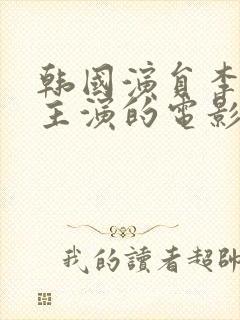 韩國演員李
主演的電影
我的讀者超帥